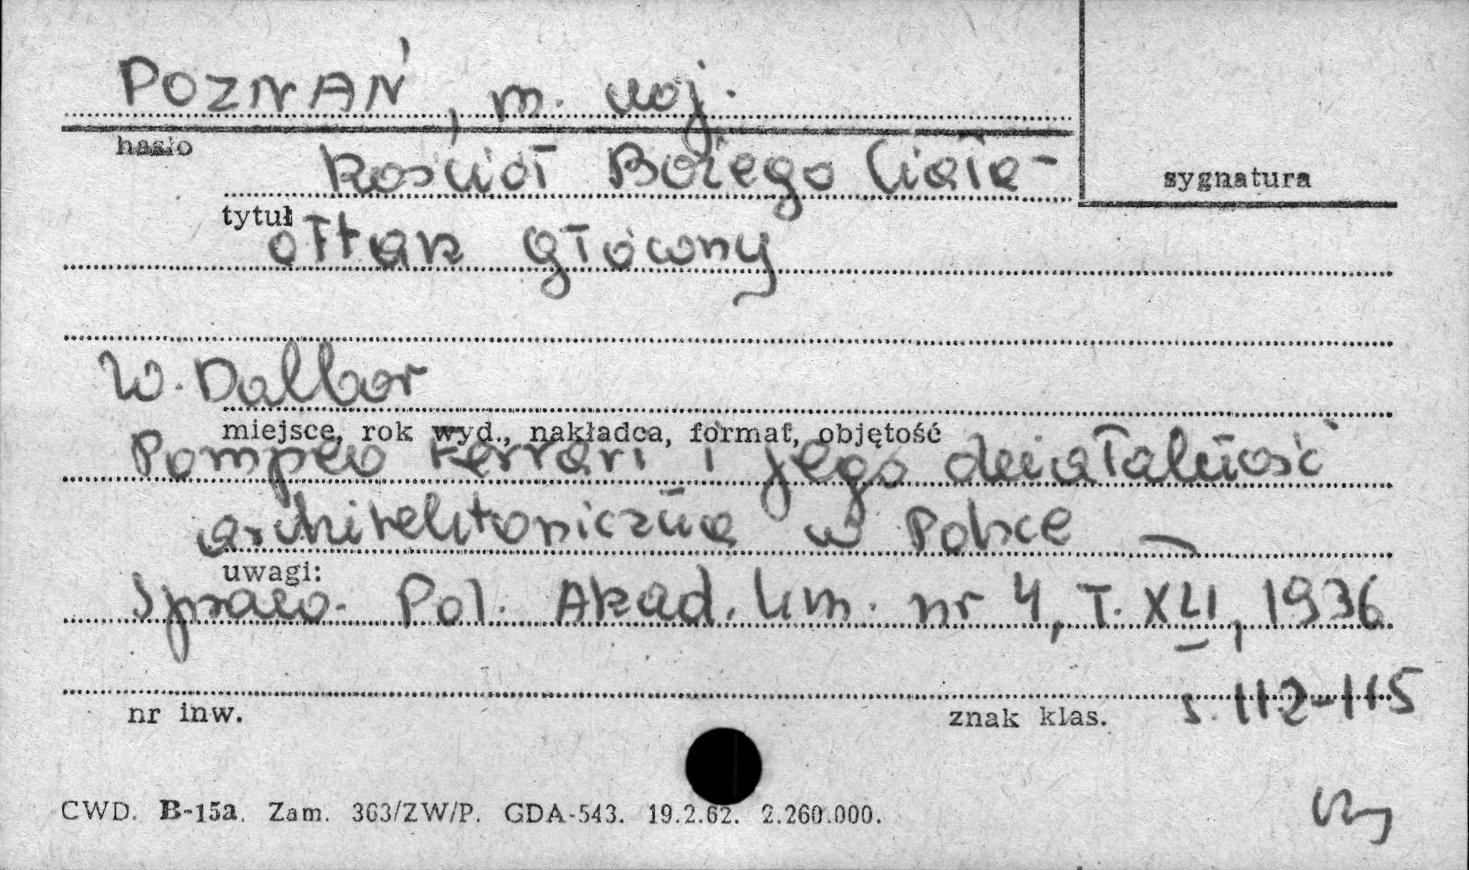 POZNAŃ, m. woj.
hasło
Kościół Bożego Ciała-
sygnatura
tytuł
ołtarz główny
W. Dalbor
miejsce, rok wyd., nakładca, format, objętość
Pompeo Ferrari i jego działalność
architektoniczna w Polsce —
uwagi:
Spraw. Pol. Akad. Um. nr 4, T. XLI, 1936
s. 112-115
nr inw.
znak klas.
CWD. B-15a. Zam. 363/ZW/P. GDA-543. 19.2.62. 2.260.000.